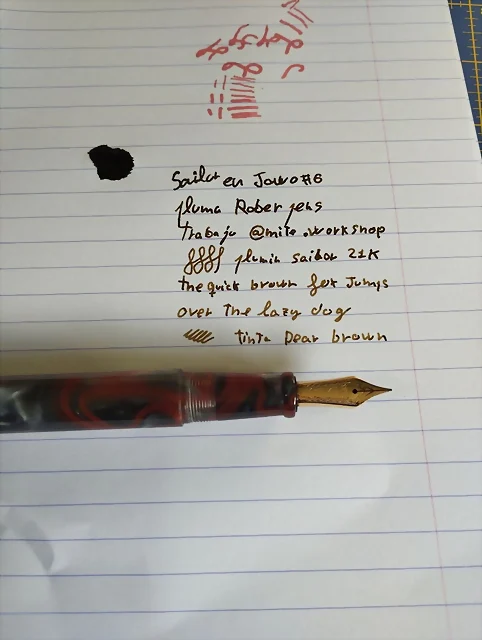 Sailor en Jowo #6
pluma Rober pens
Trabajo @mito.workshop
plumin sailor 21K
the quick brown fox Jumps
over the lazy dog
tinta Pear brown